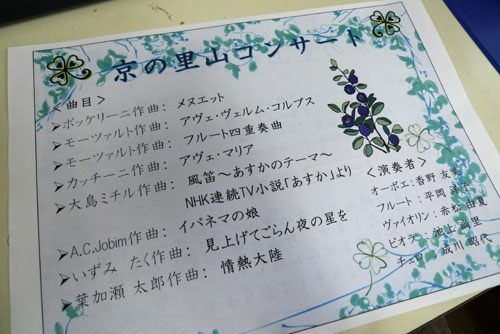 京の里山コンサート
＜曲目＞
➢ボッケリーニ作曲： メヌエット
➢モーツァルト作曲： アヴェ・ヴェルム・コルプス
➢モーツァルト作曲： フルート四重奏曲
➢カッチーニ作曲： アヴェ・マリア
➢大島ミチル作曲： 風笛～あすかのテーマ～
NHK連続TV小説「あすか」より
➢A.C.Jobim作曲： イパネマの娘
➢いずみ たく作曲： 見上げてごらん夜の星を
➢葉加瀬 太郎作曲： 情熱大陸
＜演奏者＞
オーボエ：香野 友美
フルート：平岡 洋子
ヴァイオリン：赤松 由夏
ビオラ： 池上
チェロ： 成川 昭代